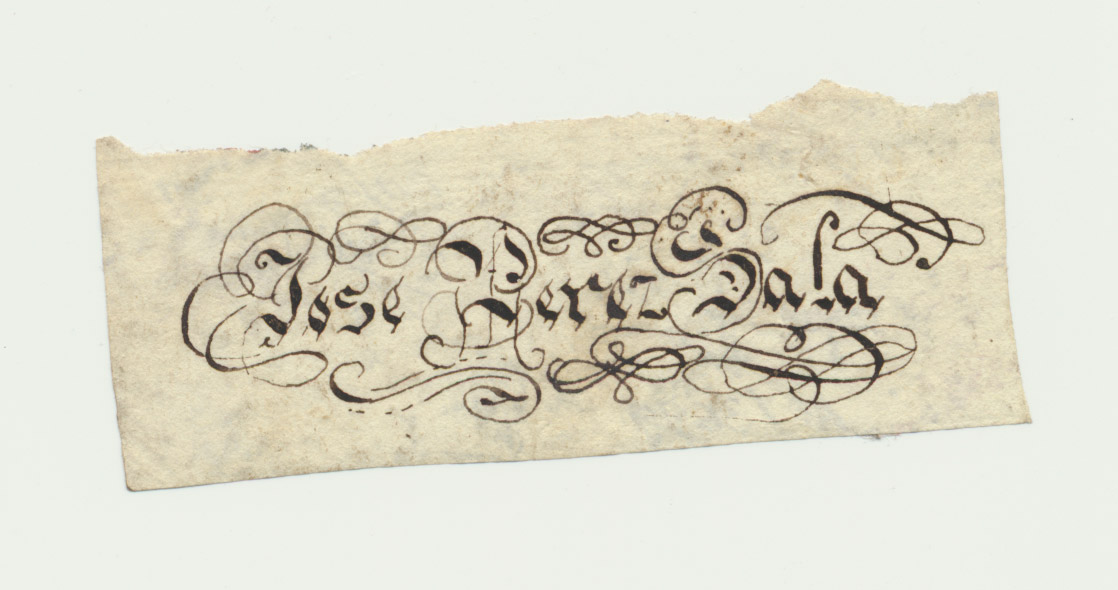 Jose Perez Sala